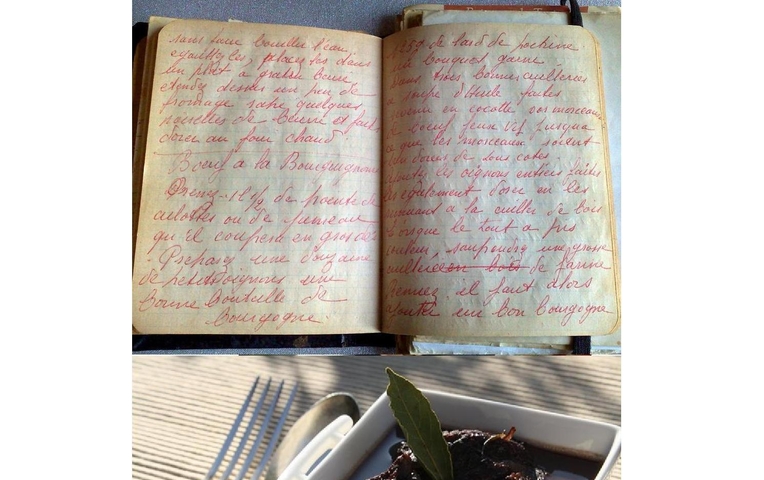 sans faire bouillir l'eau
egouttez les, placez les dans
un plat a gratin beurré
etendez dessus un peu de
fromage rapé quelques
noisettes de beurre et faites
dorer au four chaud
Boeuf a la Bourguignonne
Prenez 1K 1/2 de pointe de
culottes ou de paleron
qu'il coupera en gros dés
- Preparez une douzaine
de petits oignons une
bonne bouteille de
bourgogne.
125g de lard de poitrine
bouquet garni
Dans trois bonnes cuillerées
a soupe d'huile faites
revenir en cocotte vos morceaux
de boeuf feux vif jusqu'a
a que les morceaux soient
bien dorés de tous cotés.
ajoutez les oignons entiers faites
les egalement dorer en les
remuant a la cuiller de bois
Lorsque le tout a pris
couleur, saupoudrez une grosse
cuillerée en bois de farine
Remuez. il faut alors
ajouter un bon bourgogne